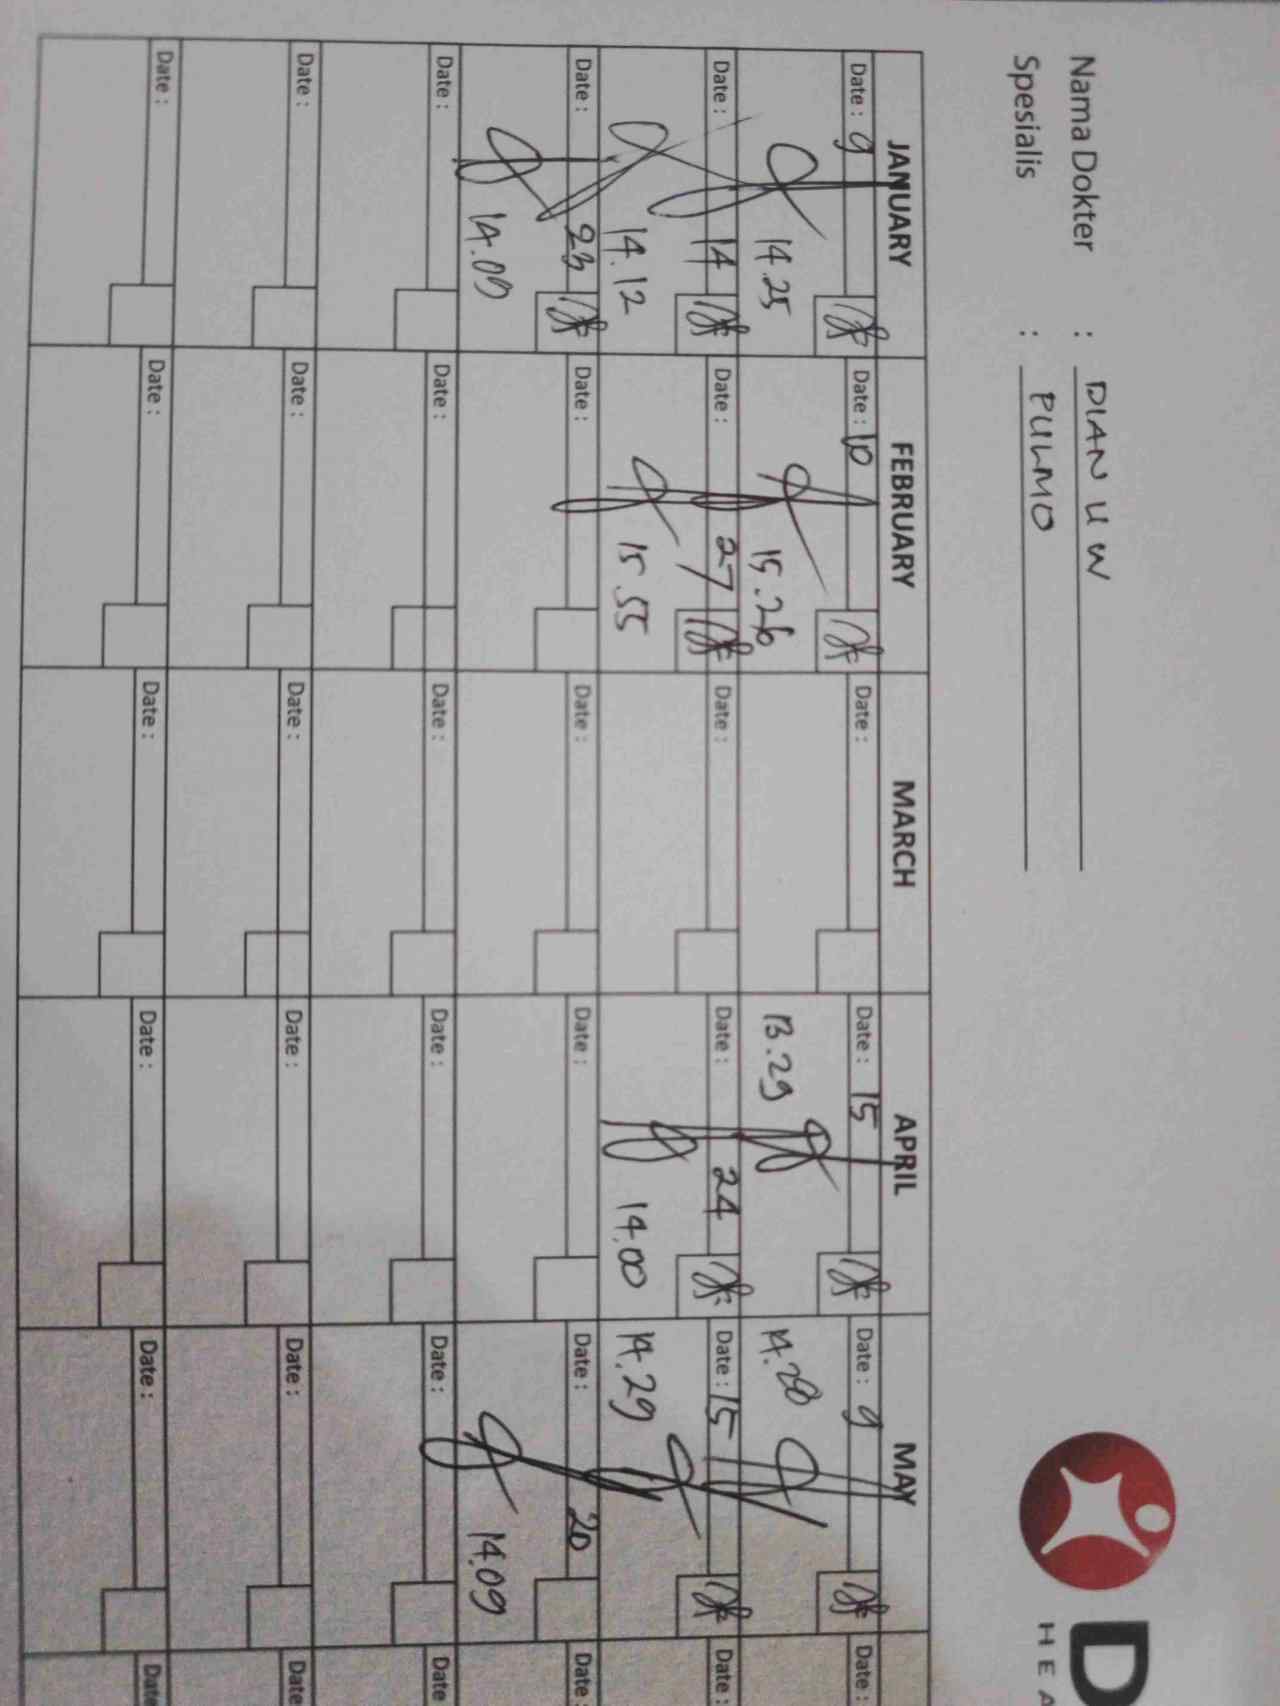 Nama Dokter : DIAN U W
Spesialis : PULMO
D
HEA
JANUARY FEBRUARY MARCH APRIL MAY
Date : 9 Date : 10 Date : Date : 15 Date : 9 Date :
14.25 15.26 13.29 14.28
Date : 14 Date : 27 Date : Date : 24 Date : 15 Date :
14.12 15.55 14.00 14.29
Date : 23 Date : Date : Date : Date : 20 Date :
14.09 14.09
Date : Date : Date : Date : Date : Date
Date : Date : Date : Date : Date : Date
Date : Date : Date : Date : Date : Date